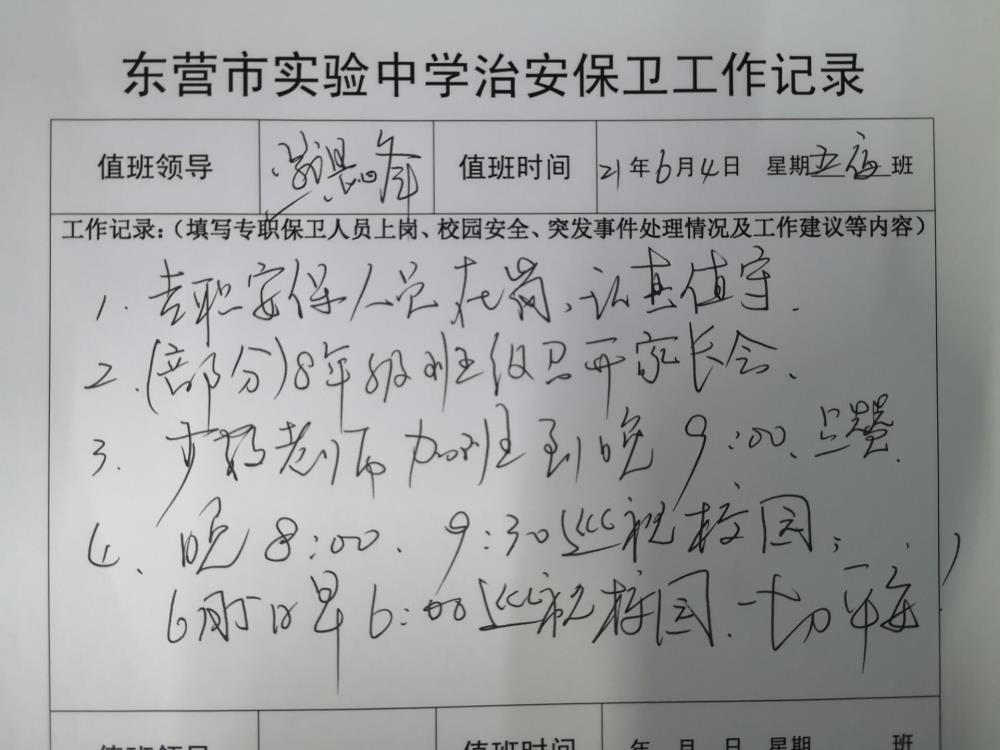 东营市实验中学治安保卫工作记录
值班领导 值班时间 21年6月4日 星期五夜班
工作记录：（填写专职保卫人员上岗、校园安全、突发事件处理情况及工作建议等内容）
1. 专职安保人员在岗、认真值守.
2. (部分)8年级班级召开家长会、
3. 老师加班到晚9:00、
4、晚8:00、9:30巡视校园；
6月5日早6:00巡视校园、一切平安
值班领导 值班时间 年 月 日 星期 班